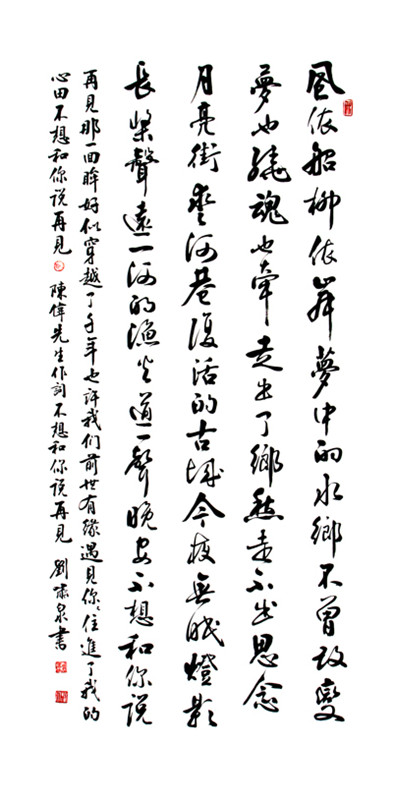 風依船柳依岸夢中的水鄉不曾改變
夢也繞魂也牽走出了鄉愁走不出思念
月亮街河巷復活的古城今夜無眠燈影
長槳聲遠一河的漁火道一聲晚安不想和你说
再見那一回眸好似穿越了千年也許我们前世有緣遇見你你住進了我的
心田不想和你说再見 陳偉先生作詞不想和你说再見 劉啸泉書